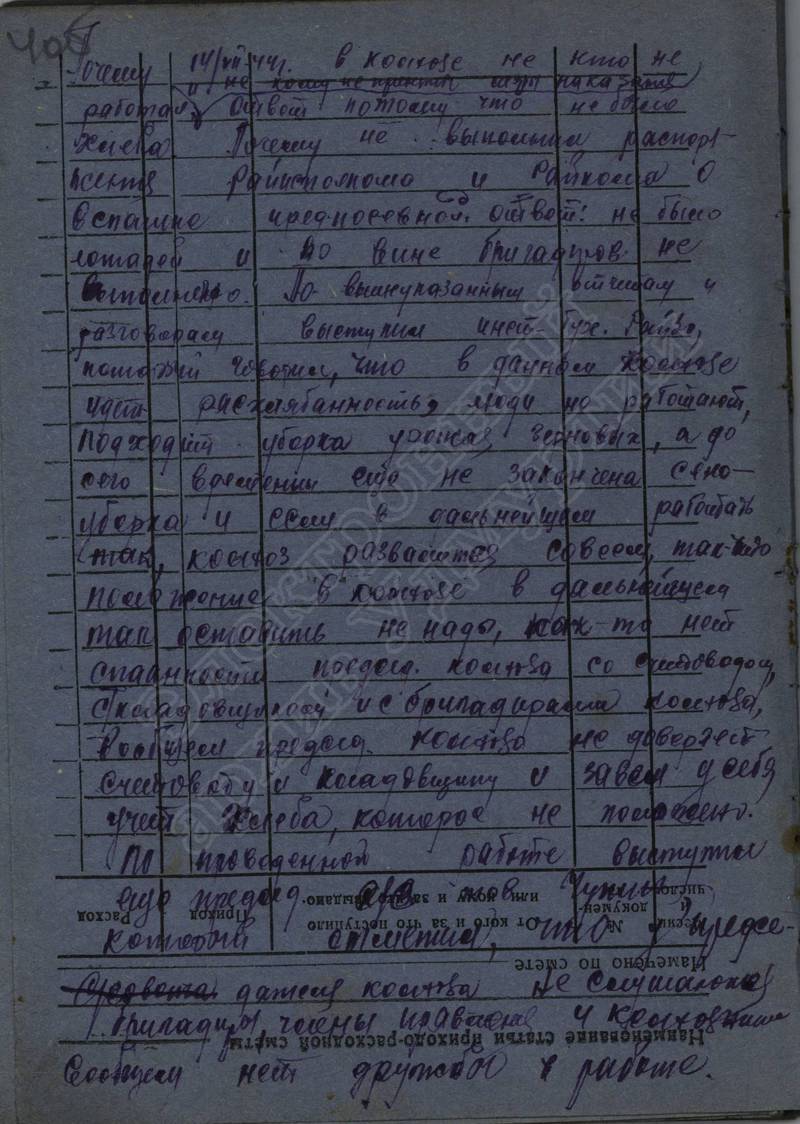 Почему 14/VII-44г. в колхозе не кто не
и не кому не принты меры наказания
работал, ответ потому что не было
хлеба. Почему не выполнил распор-
жения Райисполкома и Райкома о
вспашке предпосевной. ответ: не было
лошадей и по вине бригадиров не
выполнено. По вышеуказанным отчетам и
разговорам выступил инст-бух. Райзо,
говорил, что в данном колхозе
идет расхлябанность, люди не работают,
подходит уборка урожая зерновых, а до
сего времени еще не закончена сено-
уборка и если в дальнейшем работать
так, колхоз развалится совсем, так-что
положение в колхозе в дальнейшем
так оставить не надо, как-то нет
спаянности предсд. колхоза со счетоводом,
Кладовщиком и с бригадирами колхоза,
Вообщем председ. колхоза не доверяет
счетоводу и кладовщику и завел у себя
учет хлеба, которое не положено.
По проведенной работе выступил
еще председ.
который отметил, что у предсе-
дателя колхоза не слушаются
бригадиры, члены правления и колхозники
Сообщем нет дружбы в работе.
Наименование статьи приходо-расходной сметы
Намечено по смете
От кого и за что поступило
или кому и за что выдано
Приход
Расход